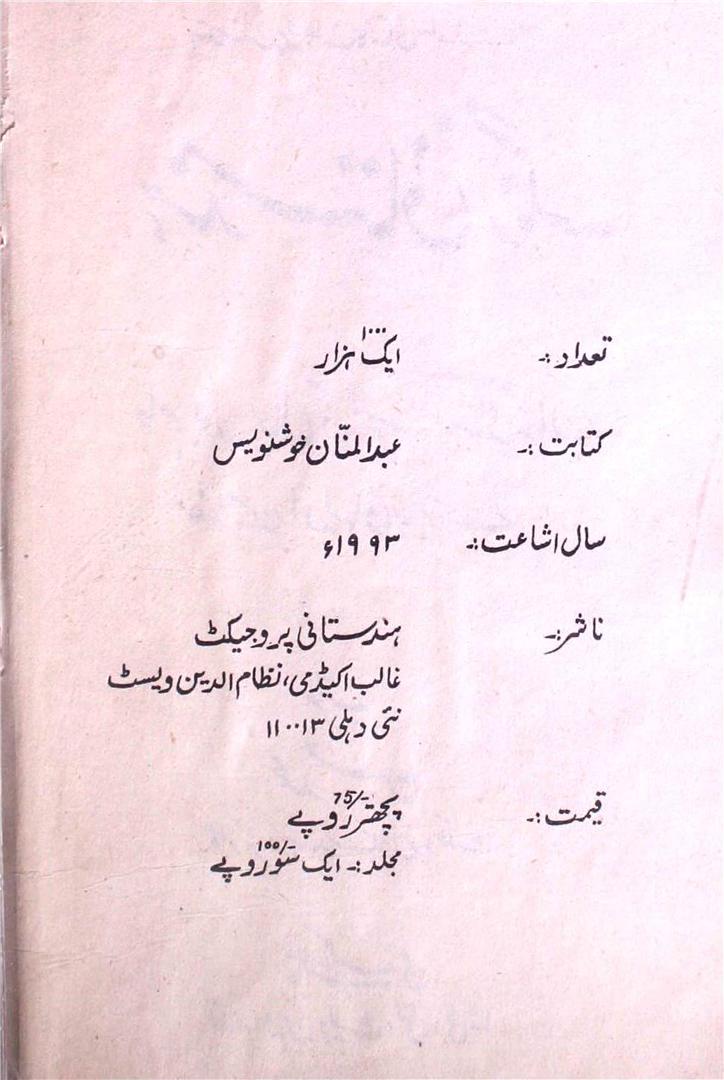 تعداد:۔ ایک ہزار ۱۰۰۰
کتابت:۔ عبدالمنّان خوشنویس
سال اشاعت:۔ ۱۹۹۳ء
ناشر:۔ ہندستانی پروجیکٹ
غالب اکیڈمی، نظام الدین ویسٹ
نئی دہلی ۱۱۰۰۱۳
قیمت:۔ پچھتر روپے 75/-
مجلد:۔ ایک سو روپے 100/-